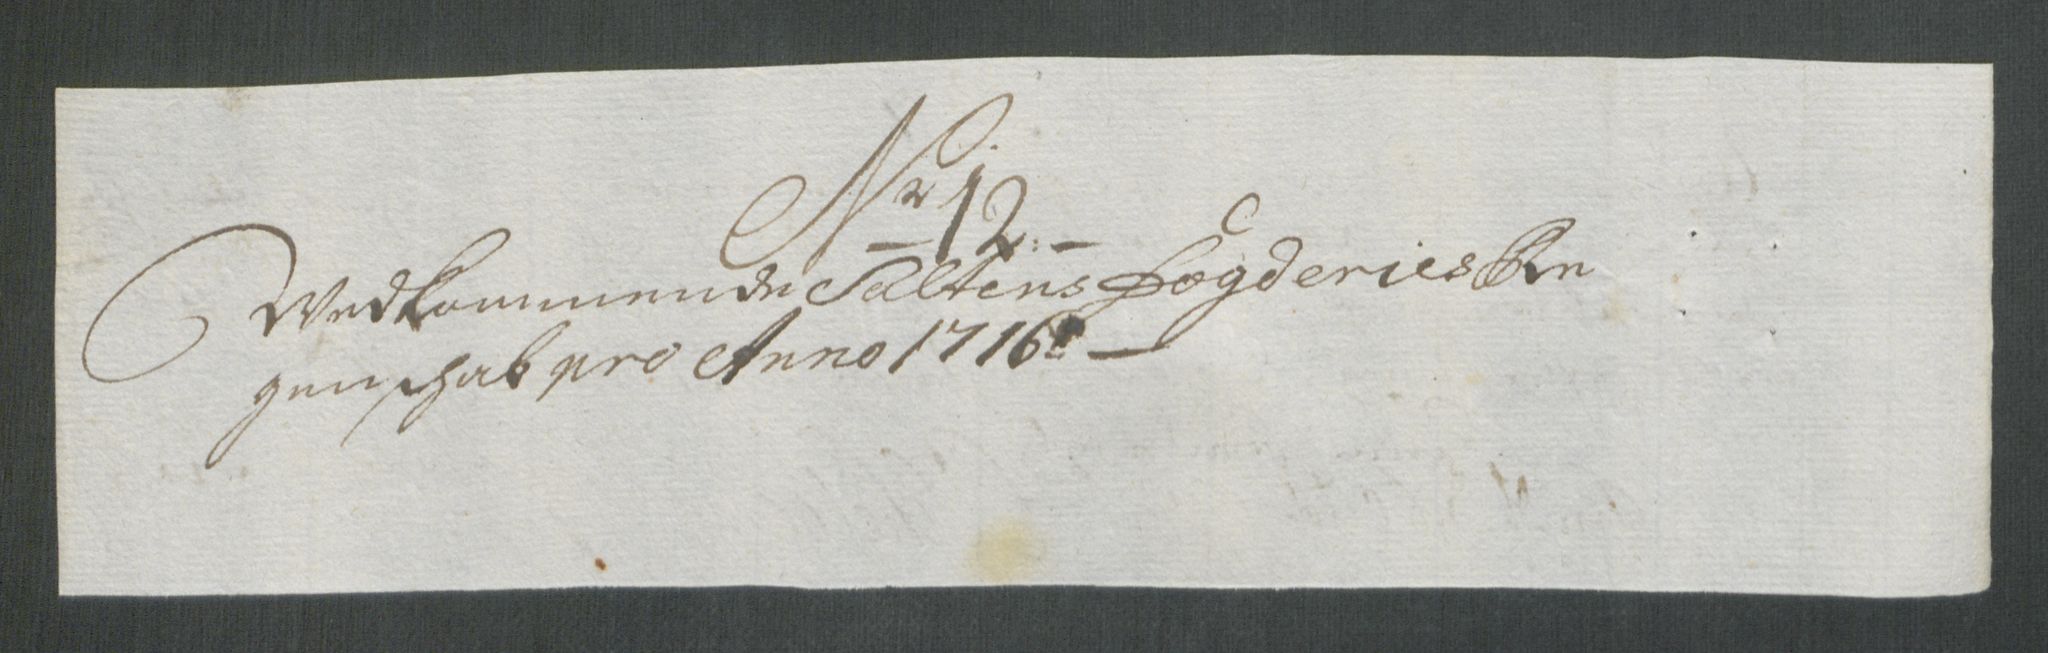 Nr 12:
Vedkommende Saltens Fogderies Re
genschab pro Anno 1716: